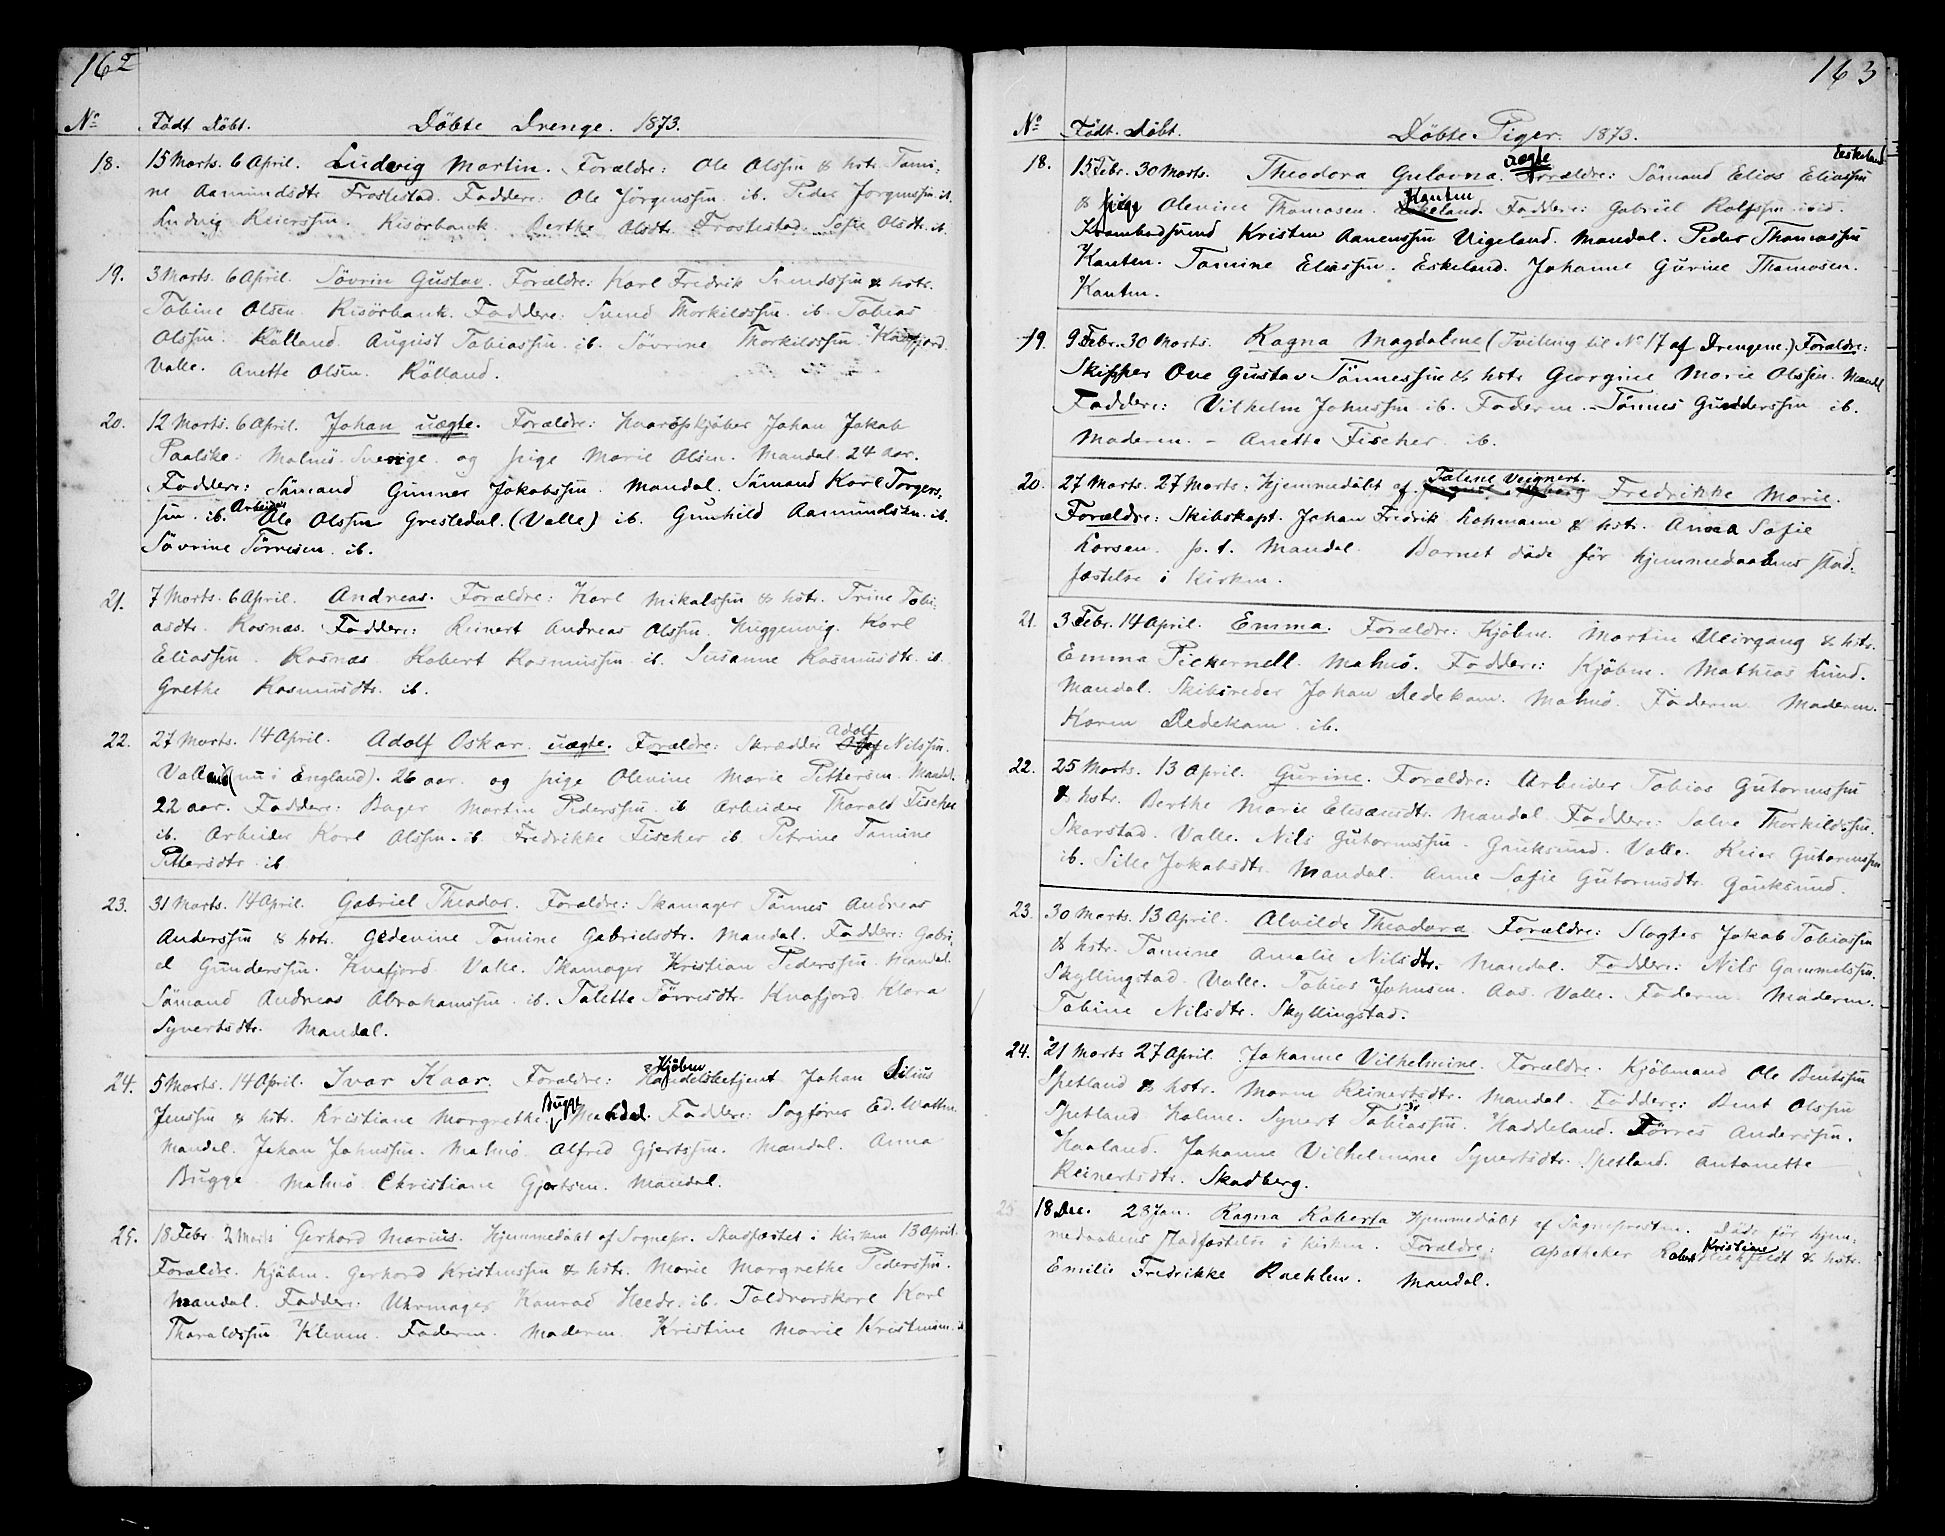 162
No Født. Döbt. Döbte Drenge. 1873.
18. 15 Marts. 6 April. Ludvig Martin. Forældre: Ole Olssøn & hstr. Tami-
ne Aamundsdtr. Frostestad. Faddere: Ole Jörgenssøn ib. Peder Jørgenssøn ib.
Ludvig Reierssøn. Risörbank. Berthe Olsdtr. Frostestad. Sofie Olsdtr. ib.
19. 3 Marts. 6 April. Sövrin Gustav. Forældre: Karl Fredrik Svendssøn & hstr.
Tobine Olsen. Risörbank. Faddere: Svend Thorkildssøn ib. Tobias
Olssøn. Rölland. August Tobiassøn ib. Sövrine Thorkildssøn Knafjord.
Valle. Anette Olsen. Rölland.
20. 12 Marts. 6 April. Johan uægte. Forældre: Johan Jakob
Paalske. Malmö. Sverige. og pige Marie Olsen. Mandal. 24 aar.
Faddere: Sömand Gunner Jakobssøn. Mandal. Sömand Karl Torgers-
søn. ib. Arbeider Ole Olssøn Gresledal. (Valle) ib. Gunhild Aamundsen. ib.
Sövrine Törresen. ib.
21. 7 Marts. 6 April. Andreas. Forældre: Karl Mikalssøn & hstr. Trine Tobi-
asdtr. Rosnæs. Faddere: Reinert Andreas Olssøn. Huggenvig. Karl
Eliassøn. Rosnæs Robert Rasmussøn. ib. Susanne Rasmusdtr. ib.
Grethe Rasmusdtr. ib.
22. 27 Marts. 14 April. Adolf Oskar. uægte. Forældre: Skrædder Adolf Nilssøn.
(nu i England). 26 aar. og pige Olevine Marie Pettersen. Mandal.
22 aar. Faddere: Bager Martin Pederssøn ib Arbeider Tharald Fischer
ib. Arbeider Karl Olssøn. ib Fredrikke Fischer ib Petrine Tamine
Pettersdtr. ib
23. 31 Marts. 14 April. Gabriel Theodor. Forældre: Skomager Tönnes Andreas
Anderssøn & hstr. Gedevine Tomine Gabrielsdtr. Mandal. Faddere: Gabri-
el Gunderssøn. Knafjord. Valle. Skomager Kristian Pederssøn. Mandal.
Sömand Andreas Abrahamssøn. ib. Talette Törresdtr. Knafjord Klara
Syvertsdtr. Mandal.
24. 5 Marts. 14 April. Ivar Kaar. Forældre: Kjöbm Handelsbetjent Johan Silius
Jenssøn & hstr. Kristiane Margrethe Bugge Mandal. Faddere: Sagförer Ed. Wattne.
Mandal. Johan Johnssøn. Malmö. Alfred Gjertssøn. Mandal. Anna
Bugge Malmö Christiane Gjertsen. Mandal.
25. 18 Febr. 2 Marts Gerhard Marius. Hjemmedöbt af Sognepr. Stadfæstet i Kirken 13 April.
Forældre. Kjöbm. Gerhard Kristenssøn & hstr. Marie Margrethe Pederssøn.
Mandal. Faddere: Uhrmager Konrad Heede. ib. Toldvorskarl Karl
Tharaldssøn Kleven. Faderen. Moderen. Kristine Marie Kristensen. ib
163
No Födt. Döbt. Döbte Piger. 1873.
18. 15 Febr. 30 Marts. Theodora Gulovna. uægte Forældre: Sömand Elias Eliassøn Eskeland
& pige Olevine Thomasen. Kanten Eskeland. Faddere: Gabriel Rolfssøn
Krambodsund Kristen Aanenssøn Vigeland. Mandal. Peder Thomassøn
Kanten. Tomine Eliassøn. Eskeland. Johanne Gurine Thomasen.
Kanten.
19. 9 Febr. 30 Marts. Ragna Magdalene (Tvilling til No 17 af Drengene.) Forældre:
Skipper Ove Gustav Tönnessøn & hstr Georgine Marie Olssøn. Mandal
Faddere: Vilhelm Johnssøn ib. Faderen. Tönnes Gunderssøn ib.
Moderen. - Anette Fischer. ib.
20. 27 Marts. 27 Marts. Hjemmedöbt af Taline Veignert. Fredrikke Marie.
Forældre: Skibskapt. Johan Fredrik Lohmann & hstr. Anna Sofie
Larsen. p. t. Mandal. Barnet döde för hjemmedaabens stad-
fæstelse i Kirken.
21. 3 Febr. 14 April. Emma. Forældre: Kjöbm. Martin Meirgang & hstr.
Emma Pickernell. Malmö. Faddere: Kjöbm. Mathias Lund.
Mandal. Skibsreder Johan Dedekam. Malmö. Faderen. Moderen.
Karen Dedekam ib.
22. 25 Marts. 13 April. Gurine. Forældre: Arbeider Tobias Gutormssøn
& hstr. Berthe Marie Elisæusdtr. Mandal. Faddere: Salve Thorkildssøn.
Skarstad. Valle. Nils Gutormssøn. Gauksund. Valle. Reier Gutormssøn
ib. Sille Jakobsdtr. Mandal. Anne Sofie Gutormsdtr. Gauksund.
23. 30 Marts. 13 April. Alvilde Theodora Forældre: Slagter Jakob Tobiassøn
& hstr. Tamine Amalie Nilsdtr. Mandal. Faddere: Nils Gammelssøn.
Skyllingstad. Valle. Tobias Johnsen. Aas. Valle. Faderen. Moderen.
Tobine Nilsdtr. Skyllingstad.
24. 21 Marts 27 April. Johanne Vilhelmine. Forældre. Kjöbmand Ole Bentssøn
Spetland & hstr. Maren Reinertsdtr. Mandal. Faddere: Bent Olssøn
Spetland Holme. Syvert Tobiassøn. Haddeland. Törres Anderssøn.
Haaland. Johanne Vilhelmine Syvertsdtr. Spetland. Antonette
Reinertsdtr. Skadberg.
25 18 Dec. 23 Jan. Ragna Roberta Hjemmedöbt af Sognepresten. Döde för hjem-
medaabens stadfæstelse i Kirken. Forældre: Apotheker Robert Kristian & hstr.
Emilie Fredrikke Mandal.